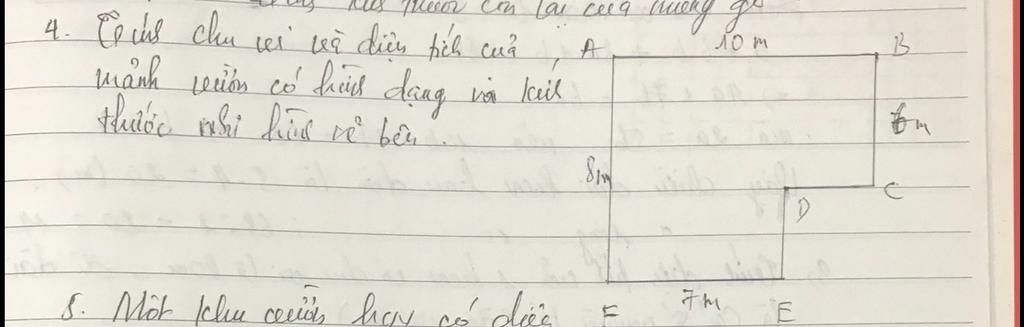 của
4. Tính chu vi và diện tích của
mảnh vườn có hình dạng và kích
thước như hình vẽ bên.
A 10 m B
6 m
8 m
D C
F 7 m E
5. Một khu vườn hay có diện